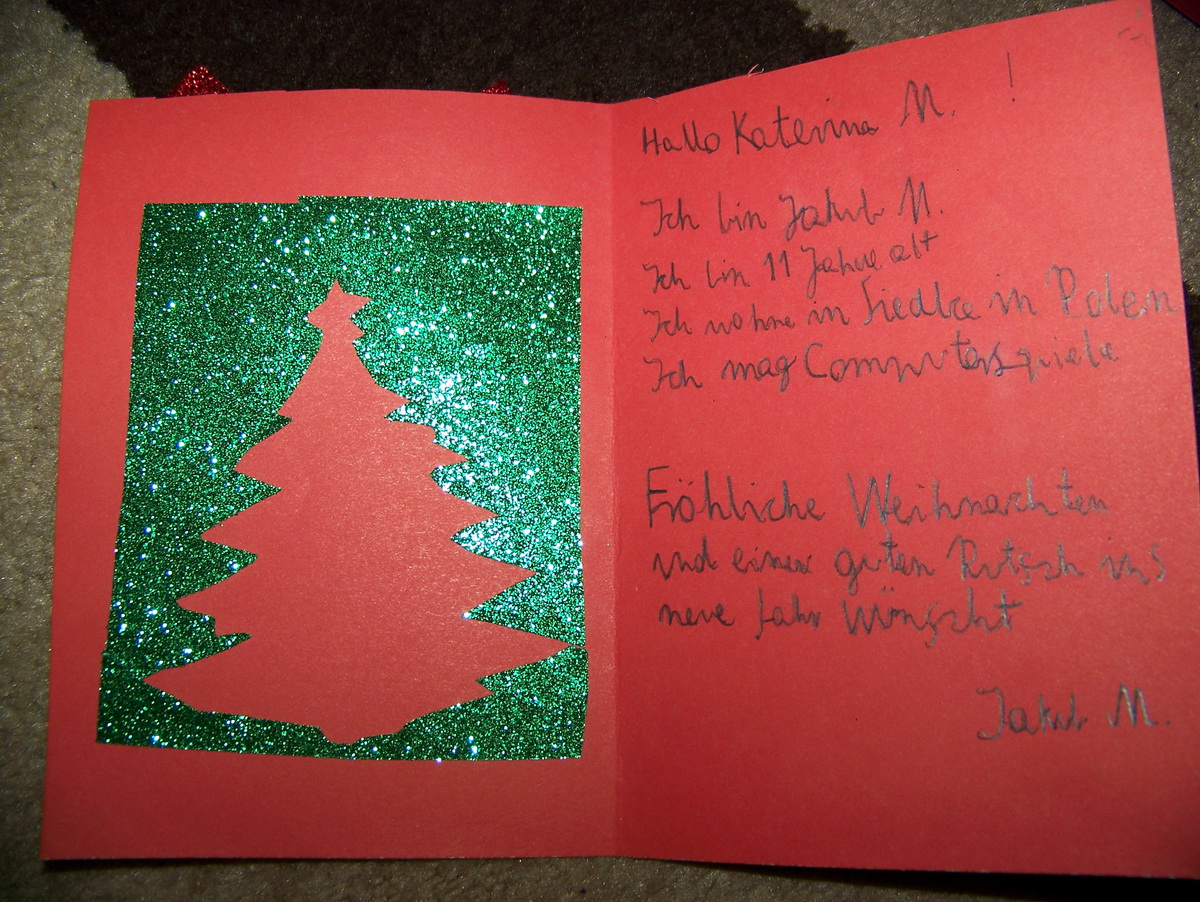 Hallo Katerina M. !
Ich bin Jakub M.
Ich bin 11 Jahre alt
Ich wohne in Siedlce in Polen
Ich mag Computerspiele
Fröhliche Weihnachten
und einen guten Rutsch ins
neue Jahr
Jakub M.